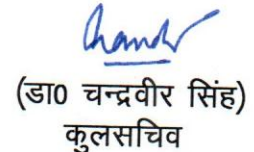 (डा0 चन्द्रवीर सिंह)
कुलसचिव